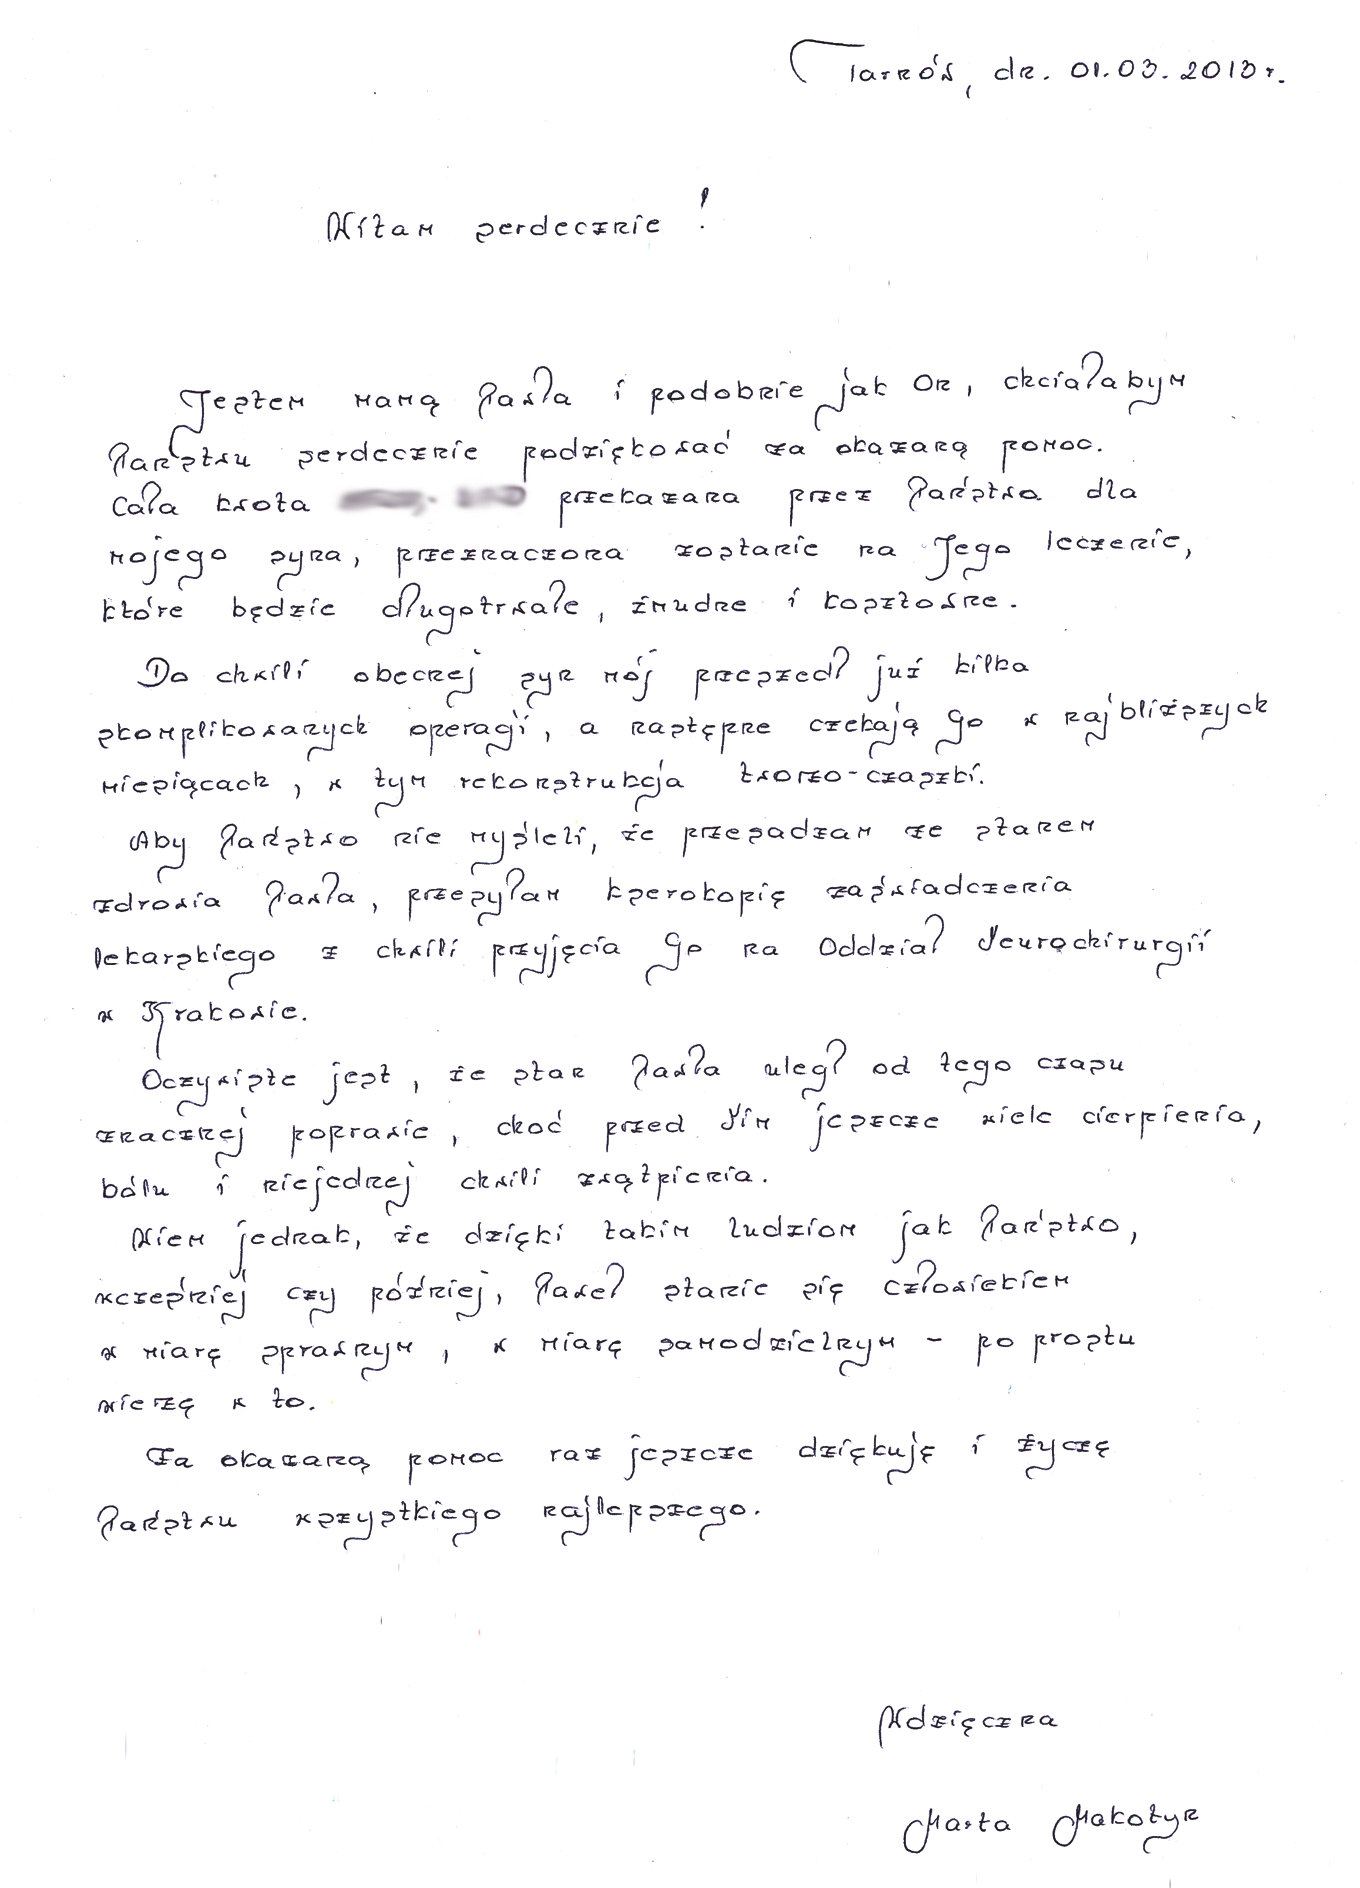 Tarnów, dn. 01.03.2013 r.
Witam serdecznie!
Jestem mamą Pawła i podobnie jak On, chciałabym
Państwu serdecznie podziękować za okazaną pomoc.
Cała kwota przekazana przez Państwa dla
mojego syna, przeznaczona zostanie na Jego leczenie,
które będzie długotrwałe, żmudne i kosztowne.
Do chwili obecnej syn mój przeszedł już kilka
skomplikowanych operacji, a następne czekają Go w najbliższych
miesiącach, w tym rekonstrukcja twarzo-czaszki.
Aby Państwo nie myśleli, że przesadzam ze stanem
zdrowia Pawła, przesyłam kserokopię zaświadczenia
lekarskiego z chwili przyjęcia Go na Oddział Neurochirurgii
w Krakowie.
Oczywiste jest, że stan Pawła uległ od tego czasu
znacznej poprawie, choć przed Nim jeszcze wiele cierpienia,
bólu i niejednej chwili zwątpienia.
Wiem jednak, że dzięki takim ludziom jak Państwo,
wcześniej czy później, Paweł stanie się człowiekiem
w miarę sprawnym, w miarę samodzielnym - po prostu
wierzę w to.
Za okazaną pomoc raz jeszcze dziękuję i życzę
Państwu wszystkiego najlepszego.
Wdzięczna
Marta Makotyn